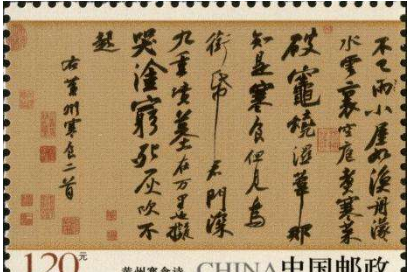 不已雨小屋如漁舟濛
水雲裏空庖煮寒菜
破竈燒濕葦那
知是寒食但見烏
銜帋君門深
九重墳墓在万里也擬
哭塗窮死灰吹不
起
右黃州寒食二首
1.20元 黄州寒食诗 CHINA 中国邮政